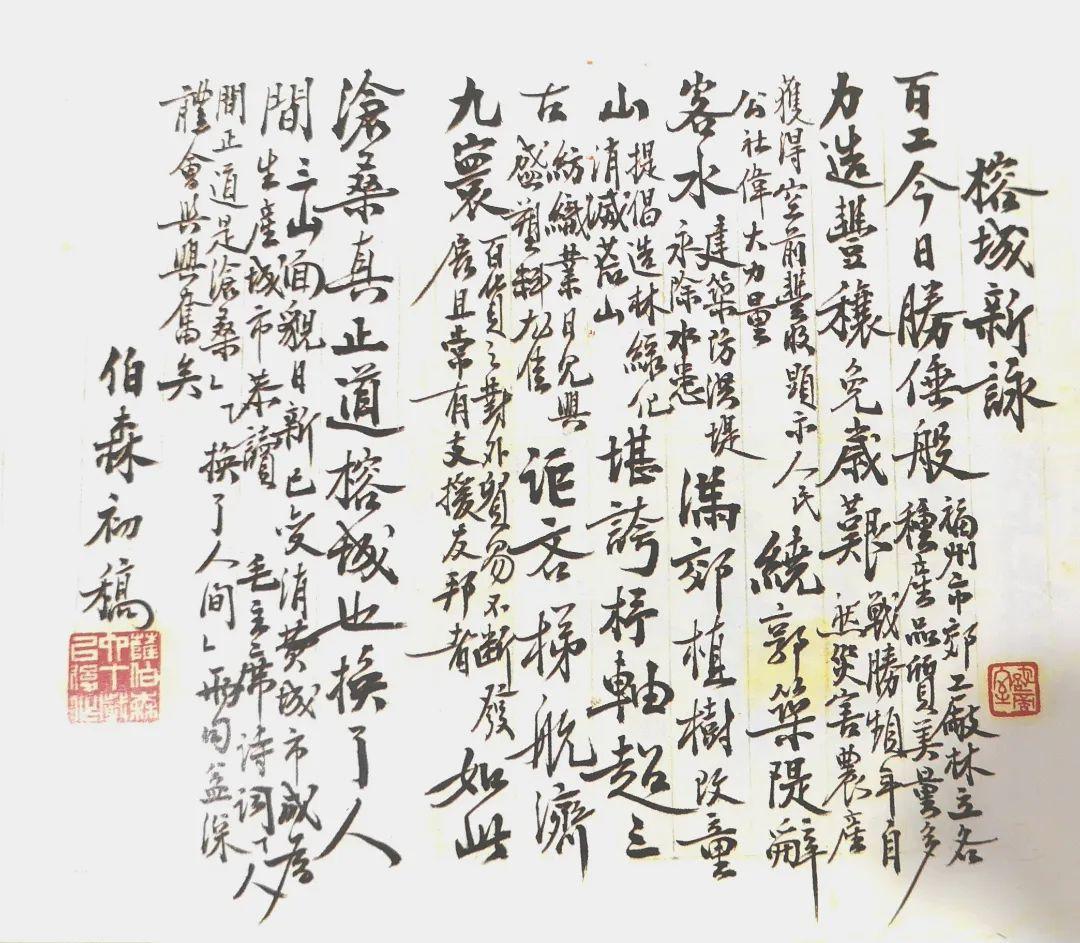 榕城新詠
百工今日勝倕般
福州市郊工廠林立各
種產品質美量多
力造豐穰免歲艱
戰勝頻年自
然災害農產
獲得空前豐收顯示人民
公社偉大力量
繞郭築隄辭
客水
建築防洪堤
永除水患
滿郊植樹改童
山
提倡造林綠化
消滅荒山
堪誇杼軸超三
古
紡織業日見興
盛塑料尤佳
詎吝梯航濟
九寰
百貨之對外貿易不斷發
展且常有支援友邦者
如此
滄桑真正道榕城也換了人
間
三山面貌日新已變消費城市成為
生產城市恭讀 毛主席詩詞「人
間正道是滄桑」「換了人間」兩句益深
體會與興奮矣
伯森初稿
薩伯森
六十歲